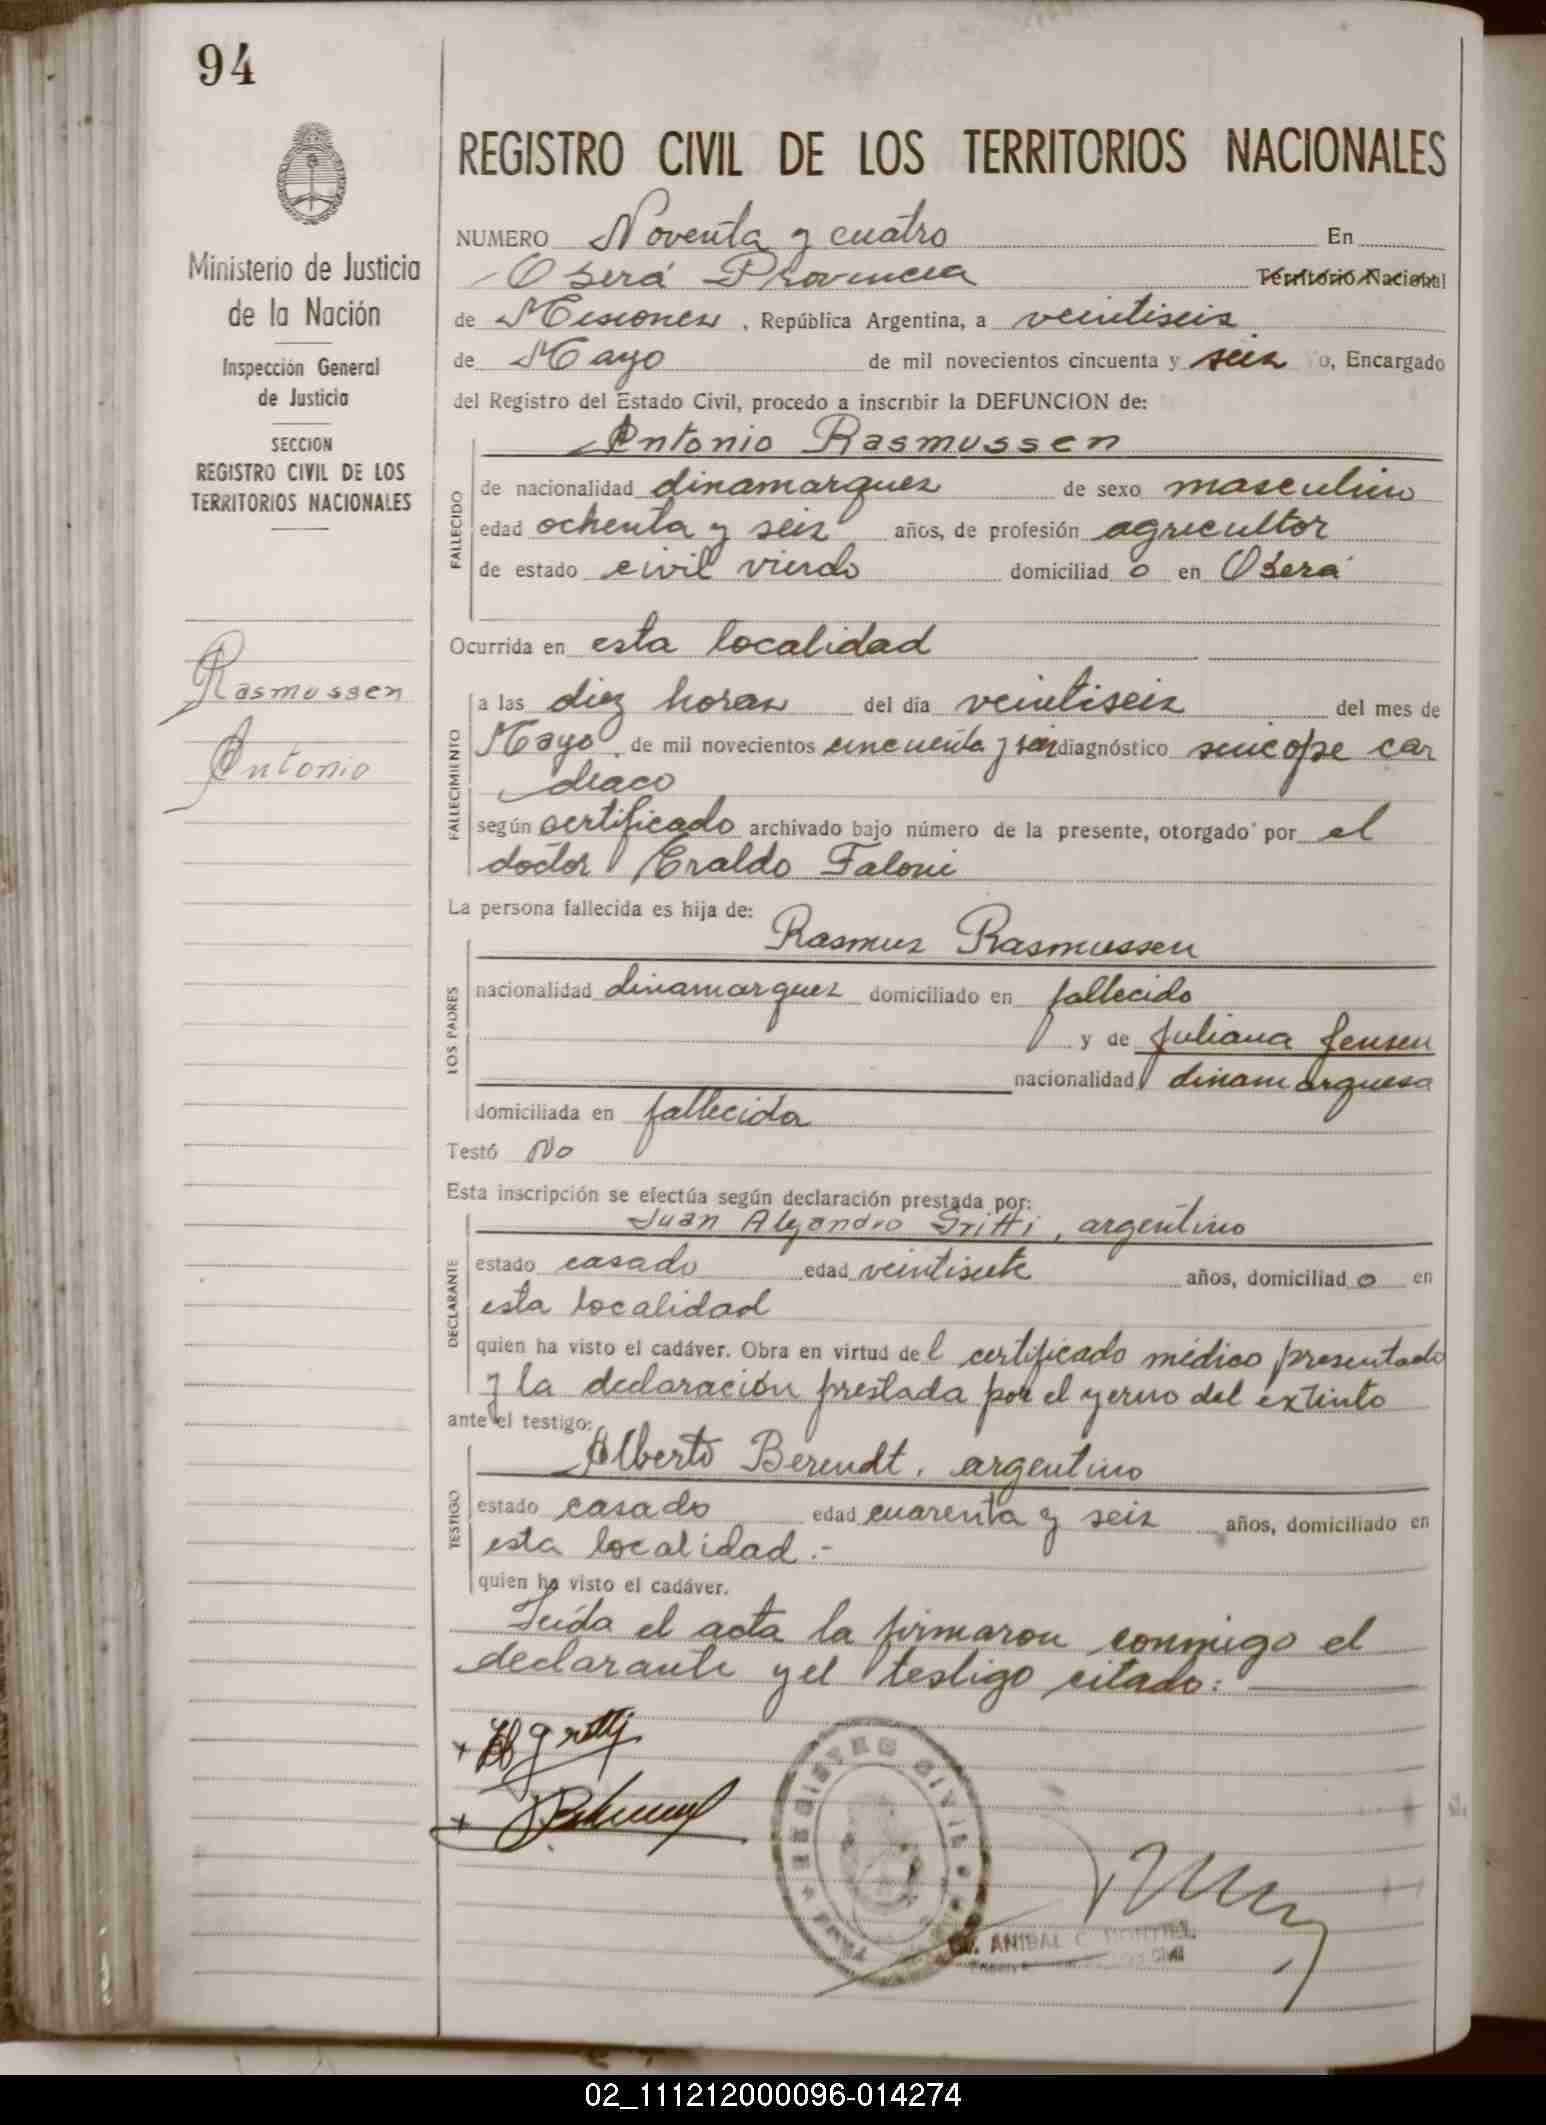 94
REGISTRO CIVIL DE LOS TERRITORIOS NACIONALES
Ministerio de Justicia
de la Nación
Inspección General
de Justicia
SECCION
REGISTRO CIVIL DE LOS
TERRITORIOS NACIONALES
Rasmussen
Antonio
NUMERO Noventa y cuatro En
Oberá Provincia Territorio Nacional
de Misiones, República Argentina, a veintiseis
de Mayo de mil novecientos cincuenta y seis o, Encargado
del Registro del Estado Civil, procedo a inscribir la DEFUNCION de:
Antonio Rasmussen
FALLECIDO
de nacionalidad dinamarques de sexo masculino
edad ochenta y seis años, de profesión agricultor
de estado civil viudo domiciliad o en Oberá
Ocurrida en esta localidad
FALLECIMIENTO
a las diez horas del día veintiseis del mes de
Mayo, de mil novecientos cincuenta y seis diagnóstico sincope car
diaco
según certificado archivado bajo número de la presente, otorgado por el
doctor Eraldo Faloni
La persona fallecida es hija de:
Rasmus Rasmussen
LOS PADRES
nacionalidad dinamarques domiciliado en fallecido
y de Juliana Jensen
nacionalidad dinamarquesa
domiciliada en fallecida
Testó No
Esta inscripción se efectúa según declaración prestada por:
Juan Alejandro Gritti, argentino
DECLARANTE
estado casado edad veintisiete años, domiciliad o en
esta localidad
quien ha visto el cadáver. Obra en virtud del certificado médico presentado
y la declaración prestada por el yerno del extinto
ante el testigo:
Alberto Berendt, argentino
TESTIGO
estado casado edad cuarenta y seis años, domiciliado en
esta localidad.-
quien ha visto el cadáver.
Leída el acta la firmaron conmigo el
declarante y el testigo citado:
REGISTRO CIVIL
ANIBAL C. MONTIEL
02_111212000096-014274